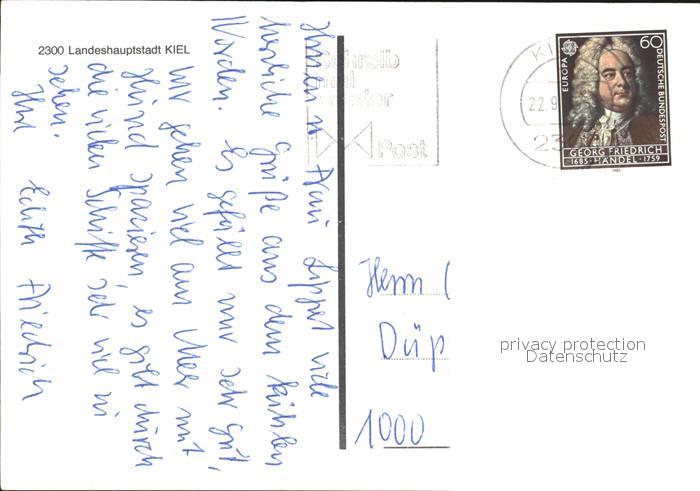 2300 Landeshauptstadt KIEL
Ihnen u. Frau Lippet viele
herzliche Grüße aus dem kühlen
Norden. Es gefällt mir sehr gut,
wir gehen viel am Ufer mit
Hund spazieren, es gibt durch
die vielen Schiffe sehr viel zu
sehen.
Ihre Edith Friedrich
Schreib
mal
wieder
Post
KI
22.9
23
EUROPA
60
DEUTSCHE BUNDESPOST
GEORG FRIEDRICH
1685 · HÄNDEL · 1759
1985
Herrn
Düp
1000
privacy protection
Datenschutz